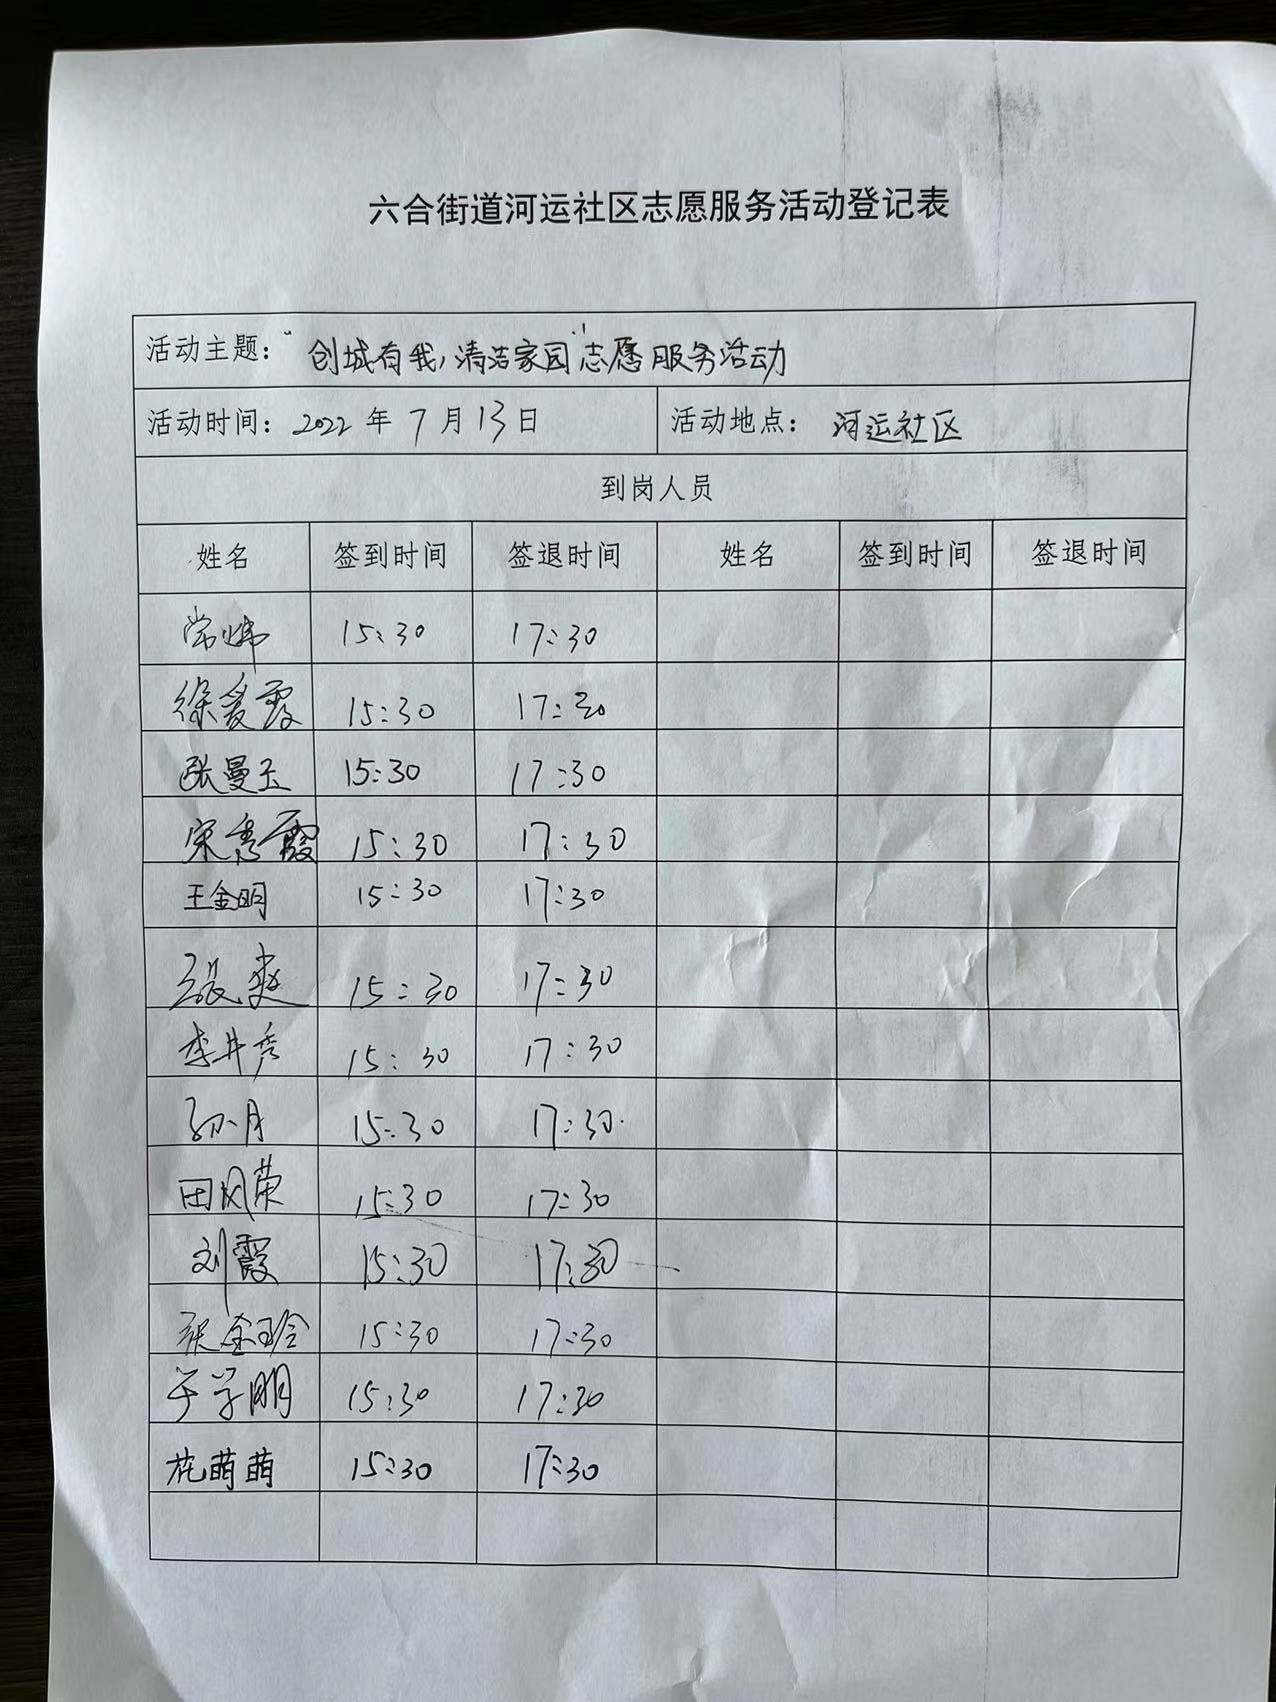 六合街道河运社区志愿服务活动登记表
活动主题：“创城有我，清洁家园”志愿服务活动
活动时间：2022年7月13日 活动地点：河运社区
到岗人员
姓名 签到时间 签退时间 姓名 签到时间 签退时间
常炜 15:30 17:30
徐爱霞 15:30 17:30
张曼玉 15:30 17:30
宋秀霞 15:30 17:30
王金明 15:30 17:30
张爽 15:30 17:30
李井秀 15:30 17:30
孙月 15:30 17:30
田风荣 15:30 17:30
刘霞 15:30 17:30
张金玲 15:30 17:30
于学明 15:30 17:30
花萌萌 15:30 17:30